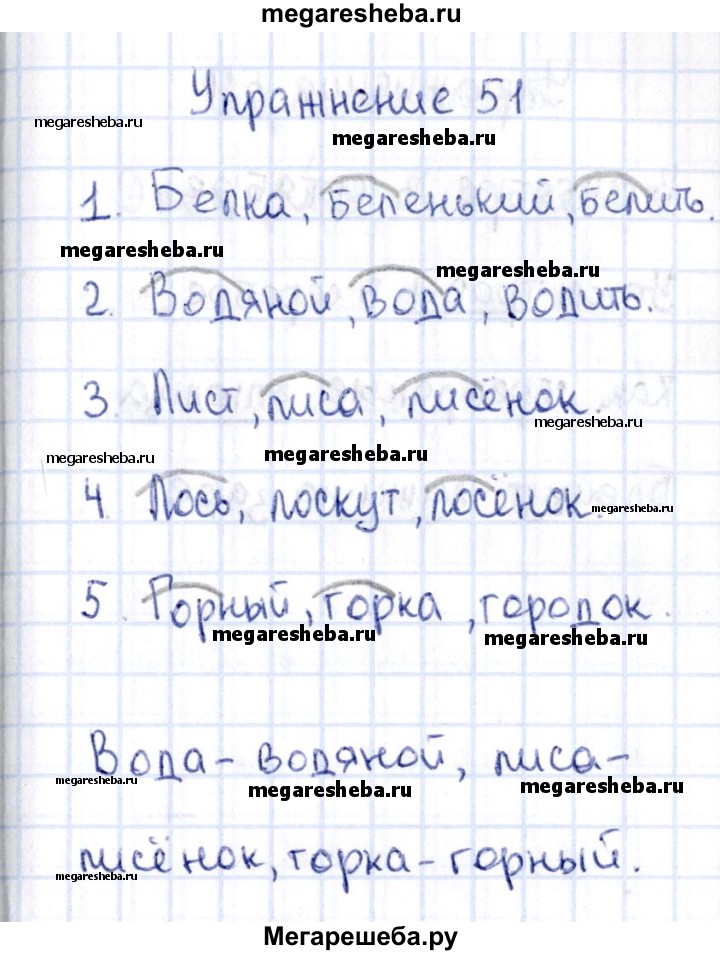 megaresheba.ru
Упражнение 51
megaresheba.ru
megaresheba.ru
1. Белка, беленький, белить.
megaresheba.ru
megaresheba.ru
2. Водяной, вода, водить.
3. Лист, лиса, лисёнок.
megaresheba.ru
megaresheba.ru
megaresheba.ru
4. Лось, лоскут, лосёнок.
megaresheba.ru
5. Горный, горка, городок.
megaresheba.ru
megaresheba.ru
Вода - водяной, лиса -
megaresheba.ru
megaresheba.ru
megaresheba.ru
лисёнок, горка - горный.
megaresheba.ru
Мегарешеба.ру